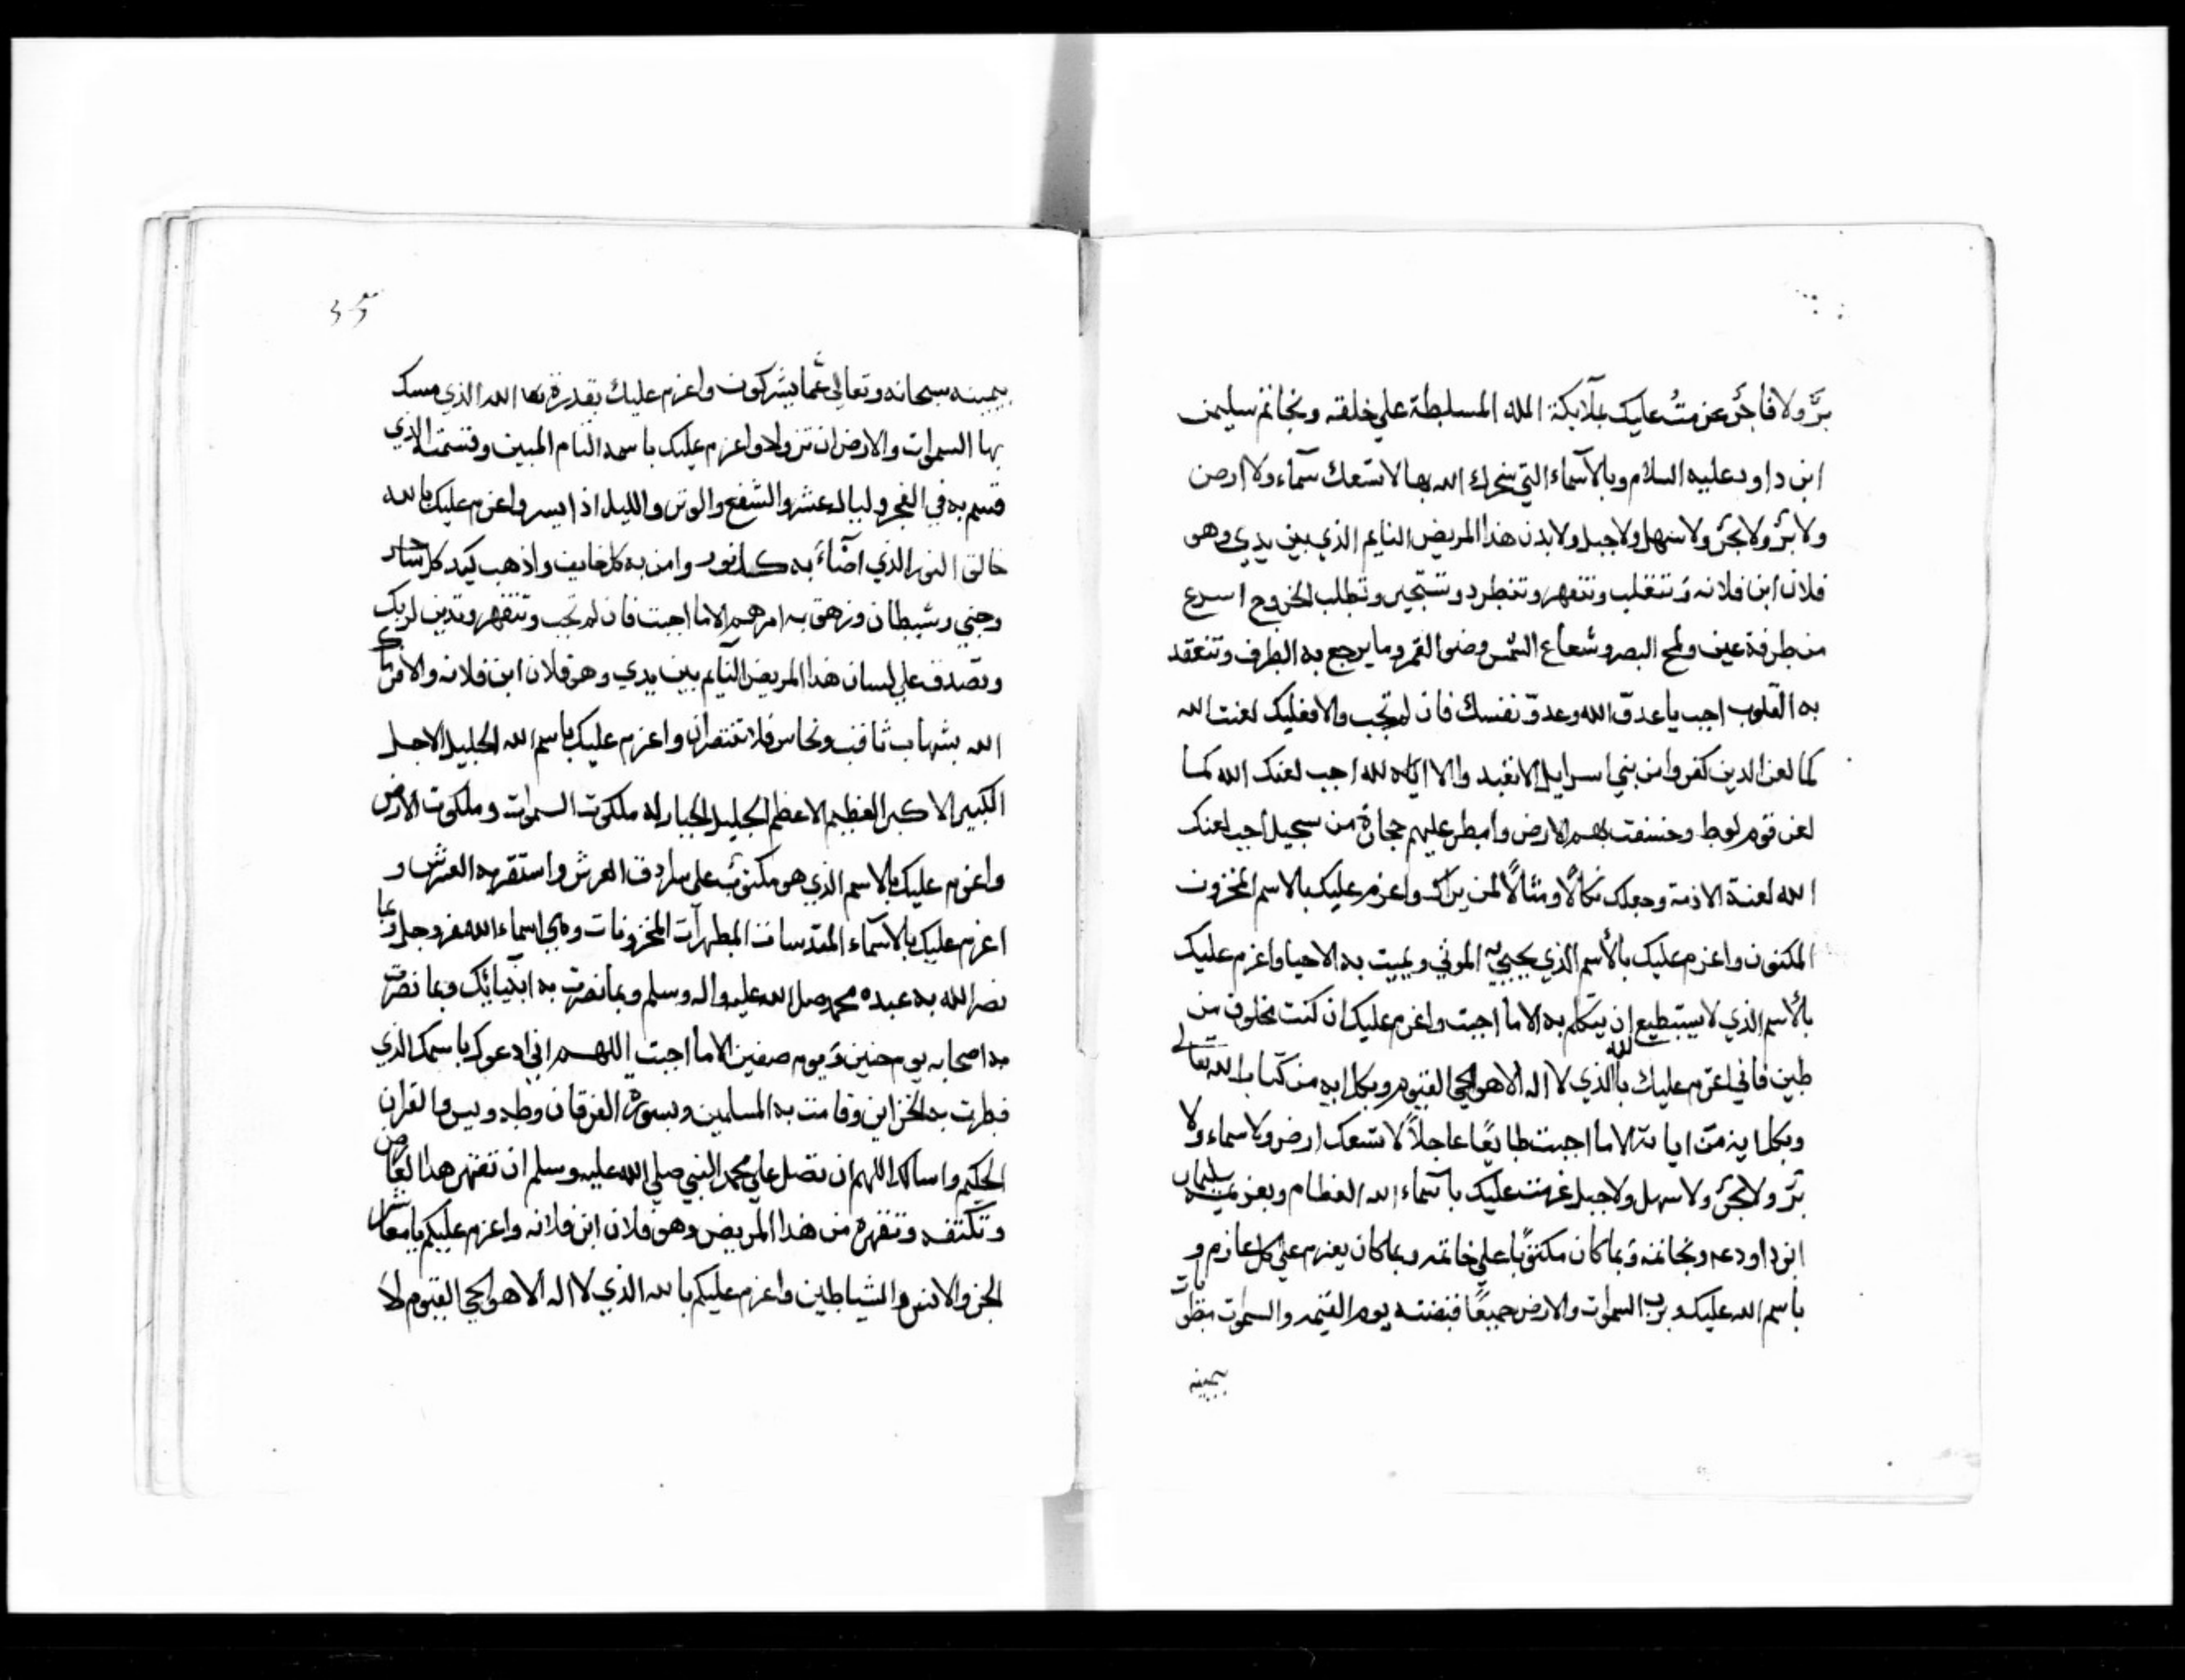 برٌّ ولا فاجرٌ عزمتُ عليك بملآئكة الله المسلطة على خلقه وبخاتم سليمن
ابن داود عليه السلام وبالآسماء التي سخرك الله بها لا تسعك سمآء ولا ارض
ولا برٌّ ولا بحرٌ ولا سهل ولا جبل ولا بدن هذا المريض النايم الذي بين يدي وهو
فلان ابن فلانه وتنغلب وتنقهر وتنطرد وتستجير وتطلب الخروج اسرع
من طرفة عين ولمح البصر وشعاع الشمس وضو القمر وما يرجع به الطرف وتنعقد
به القلوب اجب يا عدو الله وعدو نفسك فان لم تجب والا فعليك لعنت الله
كما لعن الدين كفروا من بني اسرايل لانعبد والا اياه لله اجب لعنك الله كما
لعن قوم لوط وخسفت بهم الارض وامطر عليهم حجارة من سجيل اجب لعنك
الله لعنة لازمة وجعلك نكالًا ومثالًا لمن يراك واعزم عليك بالاسم المخزون
المكنون واعزم عليك بالأسم الذي يحيي به الموتي ويميت به الاحيا واعزم عليك
بالأسم الذي لا يستطيع ان يتكلم به الا ما اجبت واعزم عليك ان كنت مخلوق من
طين فاني اعزم عليك بالله الذي لا اله الا هو الحي القيوم وبكل ايه من كتاب الله تعالى
وبكل اية من اياته الا ما اجبت طايعًا عاجلاً لا تسعك ارض ولا سماء ولا
برّ ولا بحرٌ ولا سهل ولا جبل عزمت عليك بآسماء الله العظام وبعزيمة سليمان
ابن داود عم وبخاتمه وبما كان مكتوبًا على خاتمه وبما كان يعزم على كل عازم و
باسم الله عليك وبرب السموات والارض جميعًا قبضته يوم القيمه والسموات مطويات
بيمينه
35
بيمينه سبحانه وتعالى عمّا يشركون واعزم عليك بقدرة الله الذي مسك
بها السموات والارض ان تزولا واعزم عليك باسمه التام المبين وقسمه الذي
قسم به في الفجر وليال عشر والشفع والوتر والليل اذا يسر واعزم عليك بالله
خالق النور الذي اضآء به كل نور وامن به كل خايف واذهب كيد كل ساحر
وجني وشيطان وزهق به امرهم الا ما اجبت فان لم تجب وتنقهر وتدين لربك
وتصدف علي لسان هذا المريض النآيم بين يدي وهو فلان ابن فلانه والا فرماك
الله بشهاب ثاقب ونحاس فلا تنتصران واعزم عليك باسم الله الجليل الاجل
الكبير الاكبر العظيم الاعظم الجليل الجبار له ملكوت السموات وملكوت الارض
واعزم عليك بالاسم الذي هو مكتوب على سرادق العرش واستقر به العرش و
اعزم عليك بالآسماء المقدسات المطهرآت المخزونات وهي اسماء الله عز وجل وبما
نصر الله به عبده محمد صل الله عليه واله وسلم وبما نصرت به انبيائك وبما نصرت
به اصحابه يوم حنين ويوم صفين الا ما اجبت اللهم اني ادعوك باسمك الذي
فطرت به الخزاين وقامت به المسلمين وبسورة الفرقان وطه ويس والقران
الحكيم واسالك اللهم ان تصل على محمد النبي صلي الله عليه وسلم ان تقهر هذا
وتكتفه وتقهره من هذا المريض وهو فلان ابن فلانه واعزم عليكم يا معاشر
الجن والانس والشياطين واعزم عليكم بالله الذي لا اله الا هو الحي القيوم لا